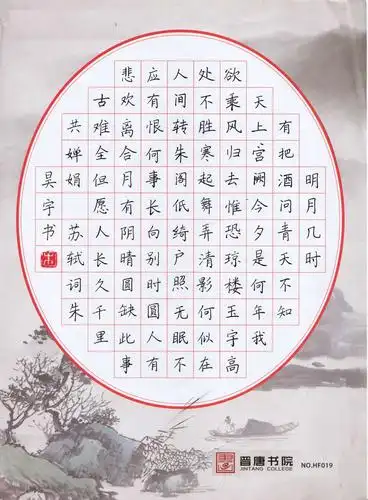 明月几时
有把酒问青天不知
天上宫阙今夕是何年我
欲乘风归去惟恐琼楼玉宇高
处不胜寒起舞弄清影何似在
人间转朱阁低绮户照无眠不
应有恨何事长向别时圆人有
悲欢离合月有阴晴圆缺此事
古难全但愿人长久千里
共婵娟 苏轼词朱
昊宇书
晋唐书院
JINTANG COLLEGE
NO.HF019